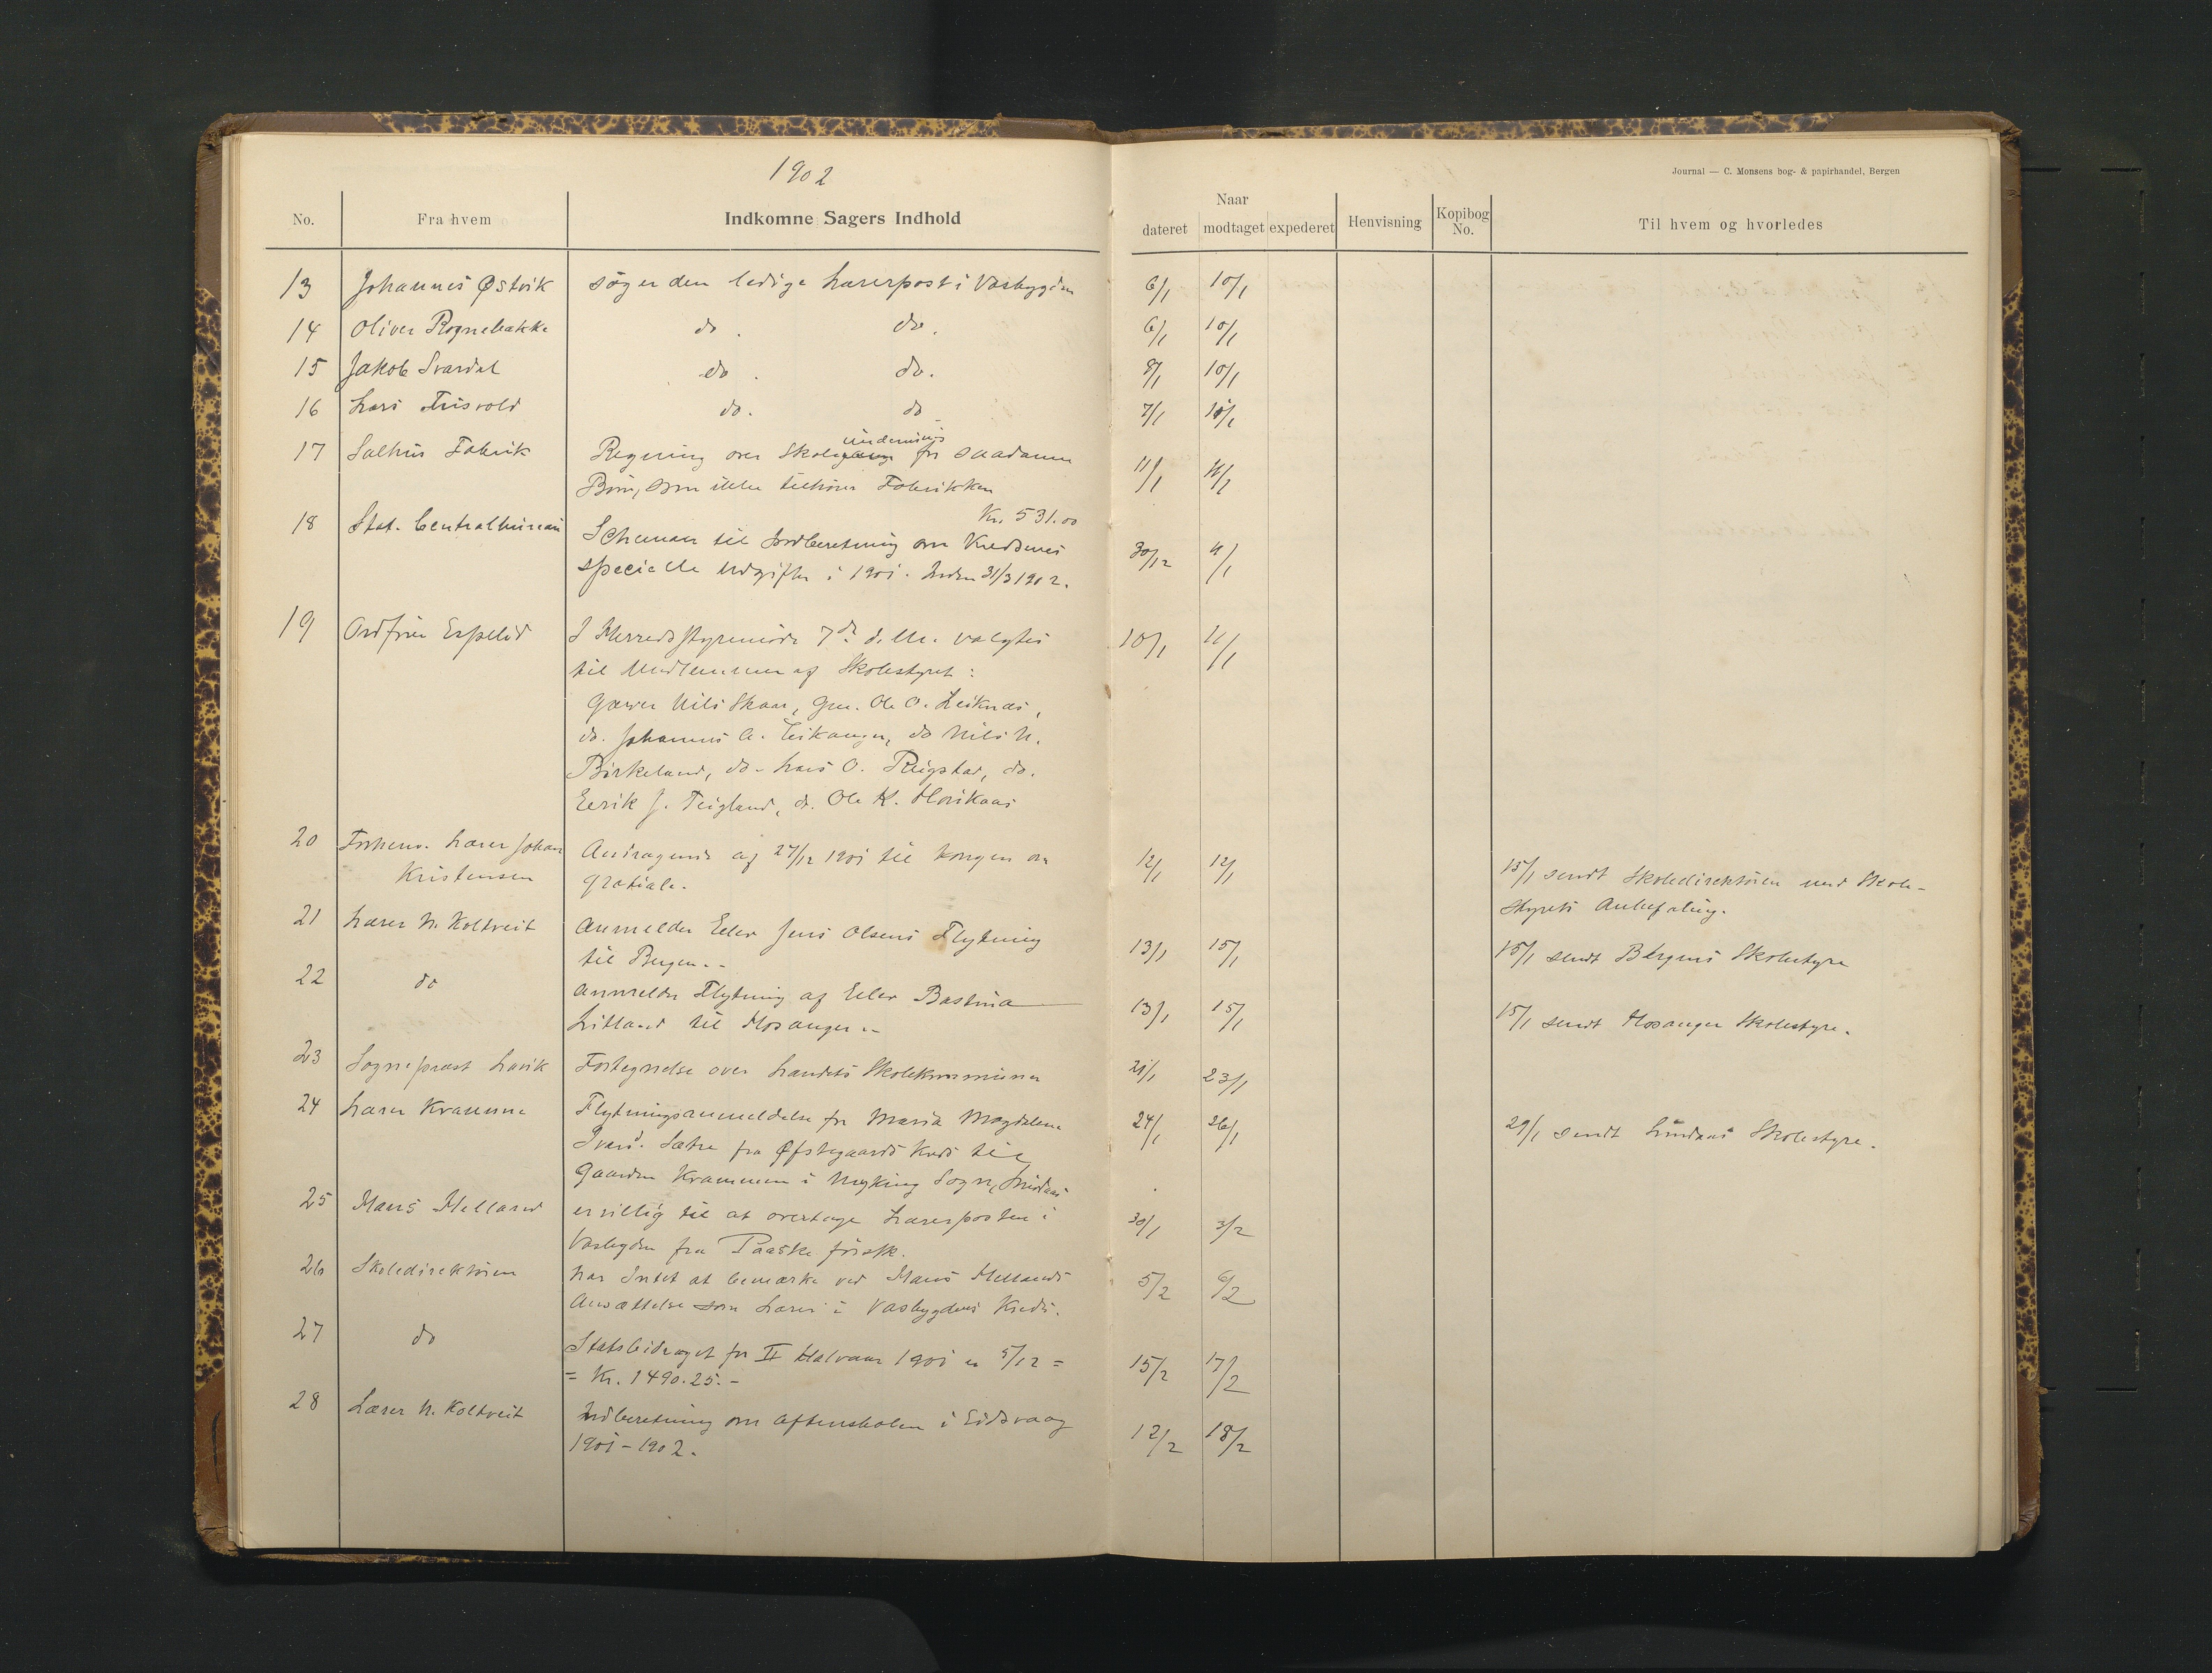 1902
Journal — C. Monsens bog- & papirhandel, Bergen
No. Fra hvem Indkomne Sagers Indhold Naar dateret modtaget expederet Henvisning Kopibog No. Til hvem og hvorledes
13 Johannes Østvik søger den ledige Lærerpost i Vasbygden 6/1 10/1
14 Oliver Rognebakke do. do. 6/1 10/1
15 Jakob Svardal do. do. 8/1 10/1
16 Lars do. do 7/1 10/1
17 Salhus Fabrik Regning over Skole undervisnings for saadanne 11/1
Børn, som ikke tilhører Fabrikken
Kr. 531.00
18 Stat. Centralbureau Schemaer til Indberetning om Kredsenes 30/12 11/1
specielle Udgifter i 1901. Inden 31/3 1902.
19 Ordfører Espelid I Herredsstyremøde 7de d. M. valgtes 10/1 11/1
til Medlemmer af Skolestyret:
Garver Nils Skaar, Gm. Ole O. Leiknes,
do. Johannes A. Eikanger, do Nils N.
Birkeland, do. Lars O. Rigstad, do.
Eerik J. Teigland, do. Ole K. Horikaas
20 Forhenv. Lærer Johan Andragende af 27/12 1901 til Kongen om 12/1 12/1 15/1 sendt Skoledirektøren med Skole-
Kristensen gratiale. styrets Anbefaling.
21 Lærer N. Koltveit Anmelder Elev Jens Olsens Flytning 13/1 15/1 15/1 sendt Bergens Skolestyre
til Bergen.-
22 do anmelder Flytning af Elev Bastina 13/1 15/1 15/1 sendt Hosanger Skolestyre.
Litland til Hosanger.-
23 Sogneprest Lavik Fortegnelse over Landets Skolekommuner 21/1 23/1
24 Lærer Kramme Flytningsanmeldelse for Maria Magdalene 24/1 26/1 29/1 sendt Lindaas Skolestyre.
Iversd. Sætre fra Øfstegaards Kreds til
Gaarden Krammen i Myking Sogn, Lindaas
25 Hans Helland er villig til at overtage Lærerposten i 30/1 3/2
Vasbygden fra Paaske førstk.
26 Skoledirektøren har Intet at bemærke ved Hans Hellands 5/2 6/2
Ansættelse som Lærer i Vasbygdens Kreds.
27 do Statsbidraget for II Halvaar 1901 er 5/12 = 15/2 17/2
= Kr. 1490.25.-
28 Lærer N. Koltveit Indberetning om Aftenskolen i Eidsvaag 12/2 18/2
1901-1902.